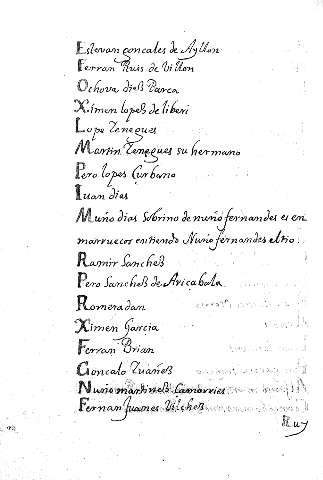 Estevan gonçales de Ayllon
Ferran Ruis de Villon
Ochova dieß Barca
Ximen lopeß de liberi
Lope Tenegues
Martin Tenegues su hermano
Pero lopes Curbano
Iuan dias
Muño dias Sobrino de nuño fernandes es en
marruecos entiendo Nuño fernandes el tio.
Ramir Sancheß
Pero Sancheß de Aricabala
Romeradan
Ximen Garcia
Ferran Brian
Gonçalo Yuañeß
Nuño martineß Camarries
Fernan Juanes Vilcheß
Ruy